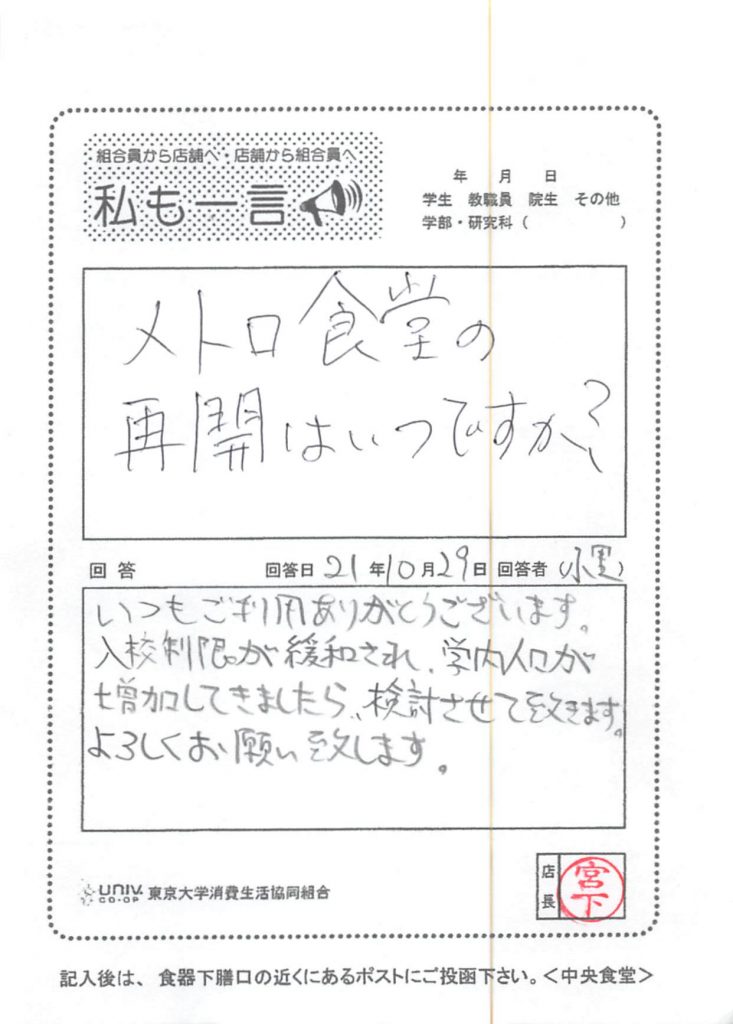 組合員から店舗へ・店舗から組合員へ
私も一言
年 月 日
学生 教職員 院生 その他
学部・研究科( )
メトロ食堂の
再開はいつですか?
回答 回答日 21年10月29日 回答者( )
いつもご利用ありがとうございます。
入校制限が緩和され、学内人口が
増加してきましたら、検討させて致きます。
よろしくお願い致します。
UNIV. CO-OP 東京大学消費生活協同組合
店長
宮下
記入後は、食器下膳口の近くにあるポストにご投函下さい。<中央食堂>